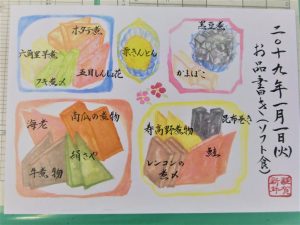 二〇一九年一月一日(火)
お品書き(ソフト食)
黒豆煮
かまぼこ
栗きんとん
ホタテ煮
六角里芋煮
フキ煮〆
昆布巻き
寿高野煮物
鮭
レンコンの
煮〆
南瓜の煮物
海老
絹さや
牛煮物